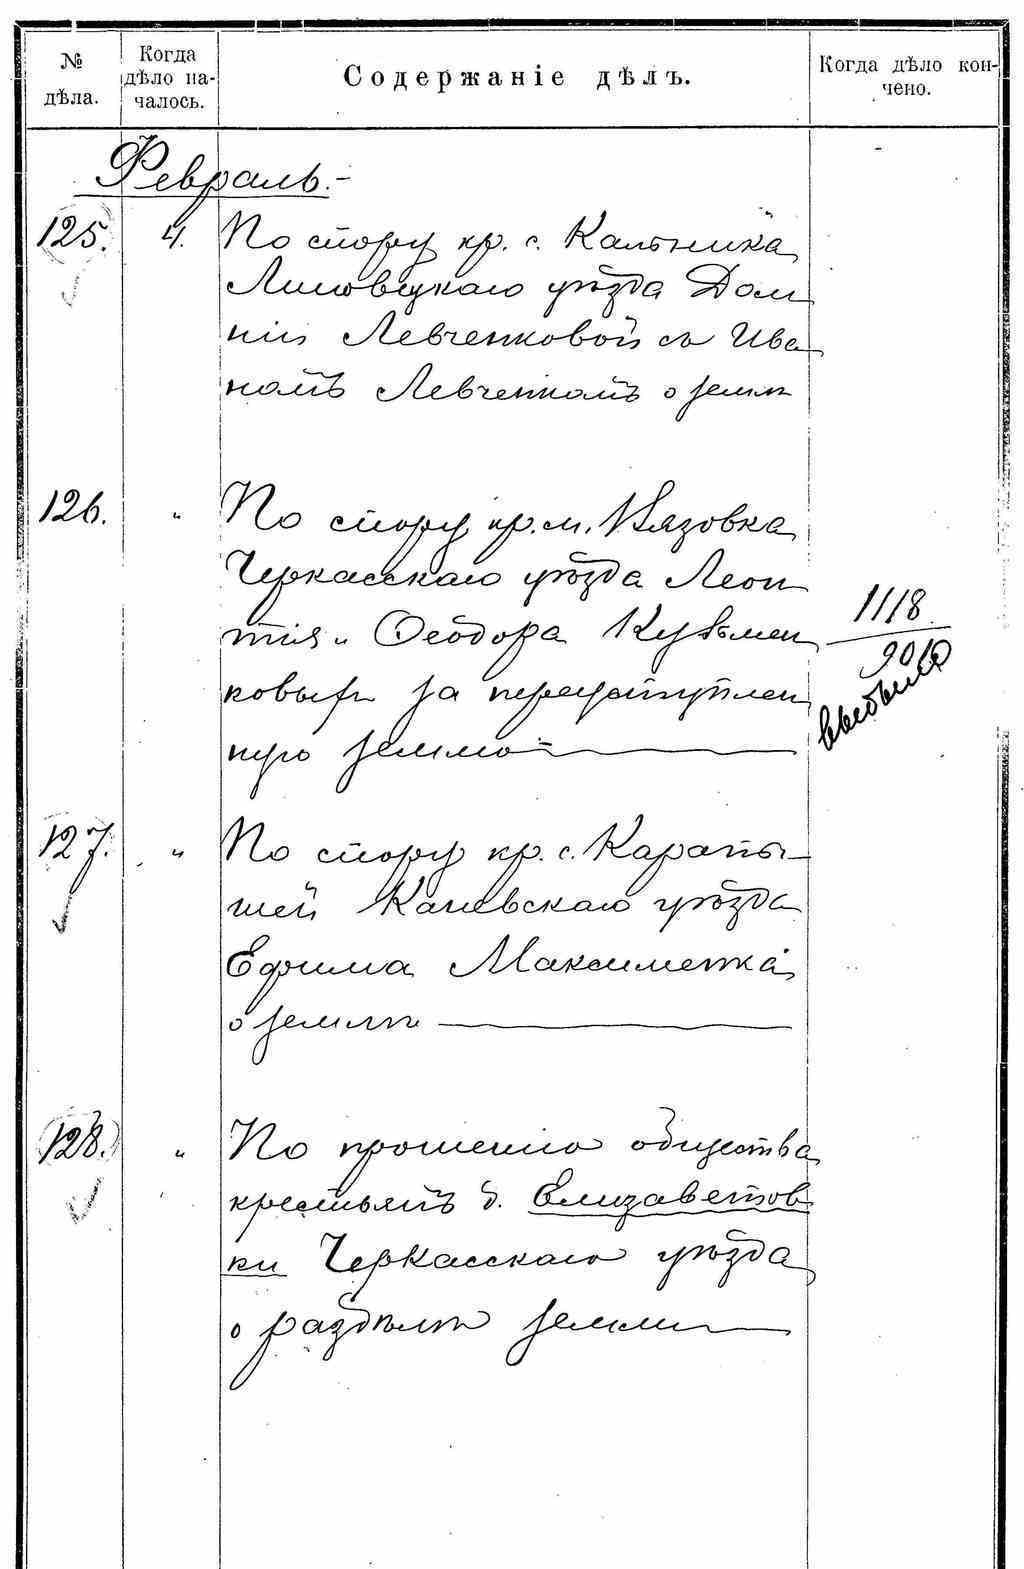 № дѣла.
Когда дѣло на-
чалось.
Содержаніе дѣлъ.
Когда дѣло кон-
чено.
Февраль.-
125. 4. По спору кр. с. Кальника
Липовецкаго уѣзда Дом
ніи Левченковой съ Ива
номъ Левченкомъ о землѣ
126. " По спору кр. м. Вязовка
Черкасскаго уѣзда Леон
тія и Ѳеодора Кузьмен
ковыхъ за переуступлен
ную землю
1118
901
выбыло
127. " По спору кр. с. Карапы-
шей Каневскаго уѣзда
Ефима Максименка
о землѣ
128. " По прошенію общества
крестьянъ д. Елизаветов
ки Черкасскаго уѣзда
о раздѣлѣ земли